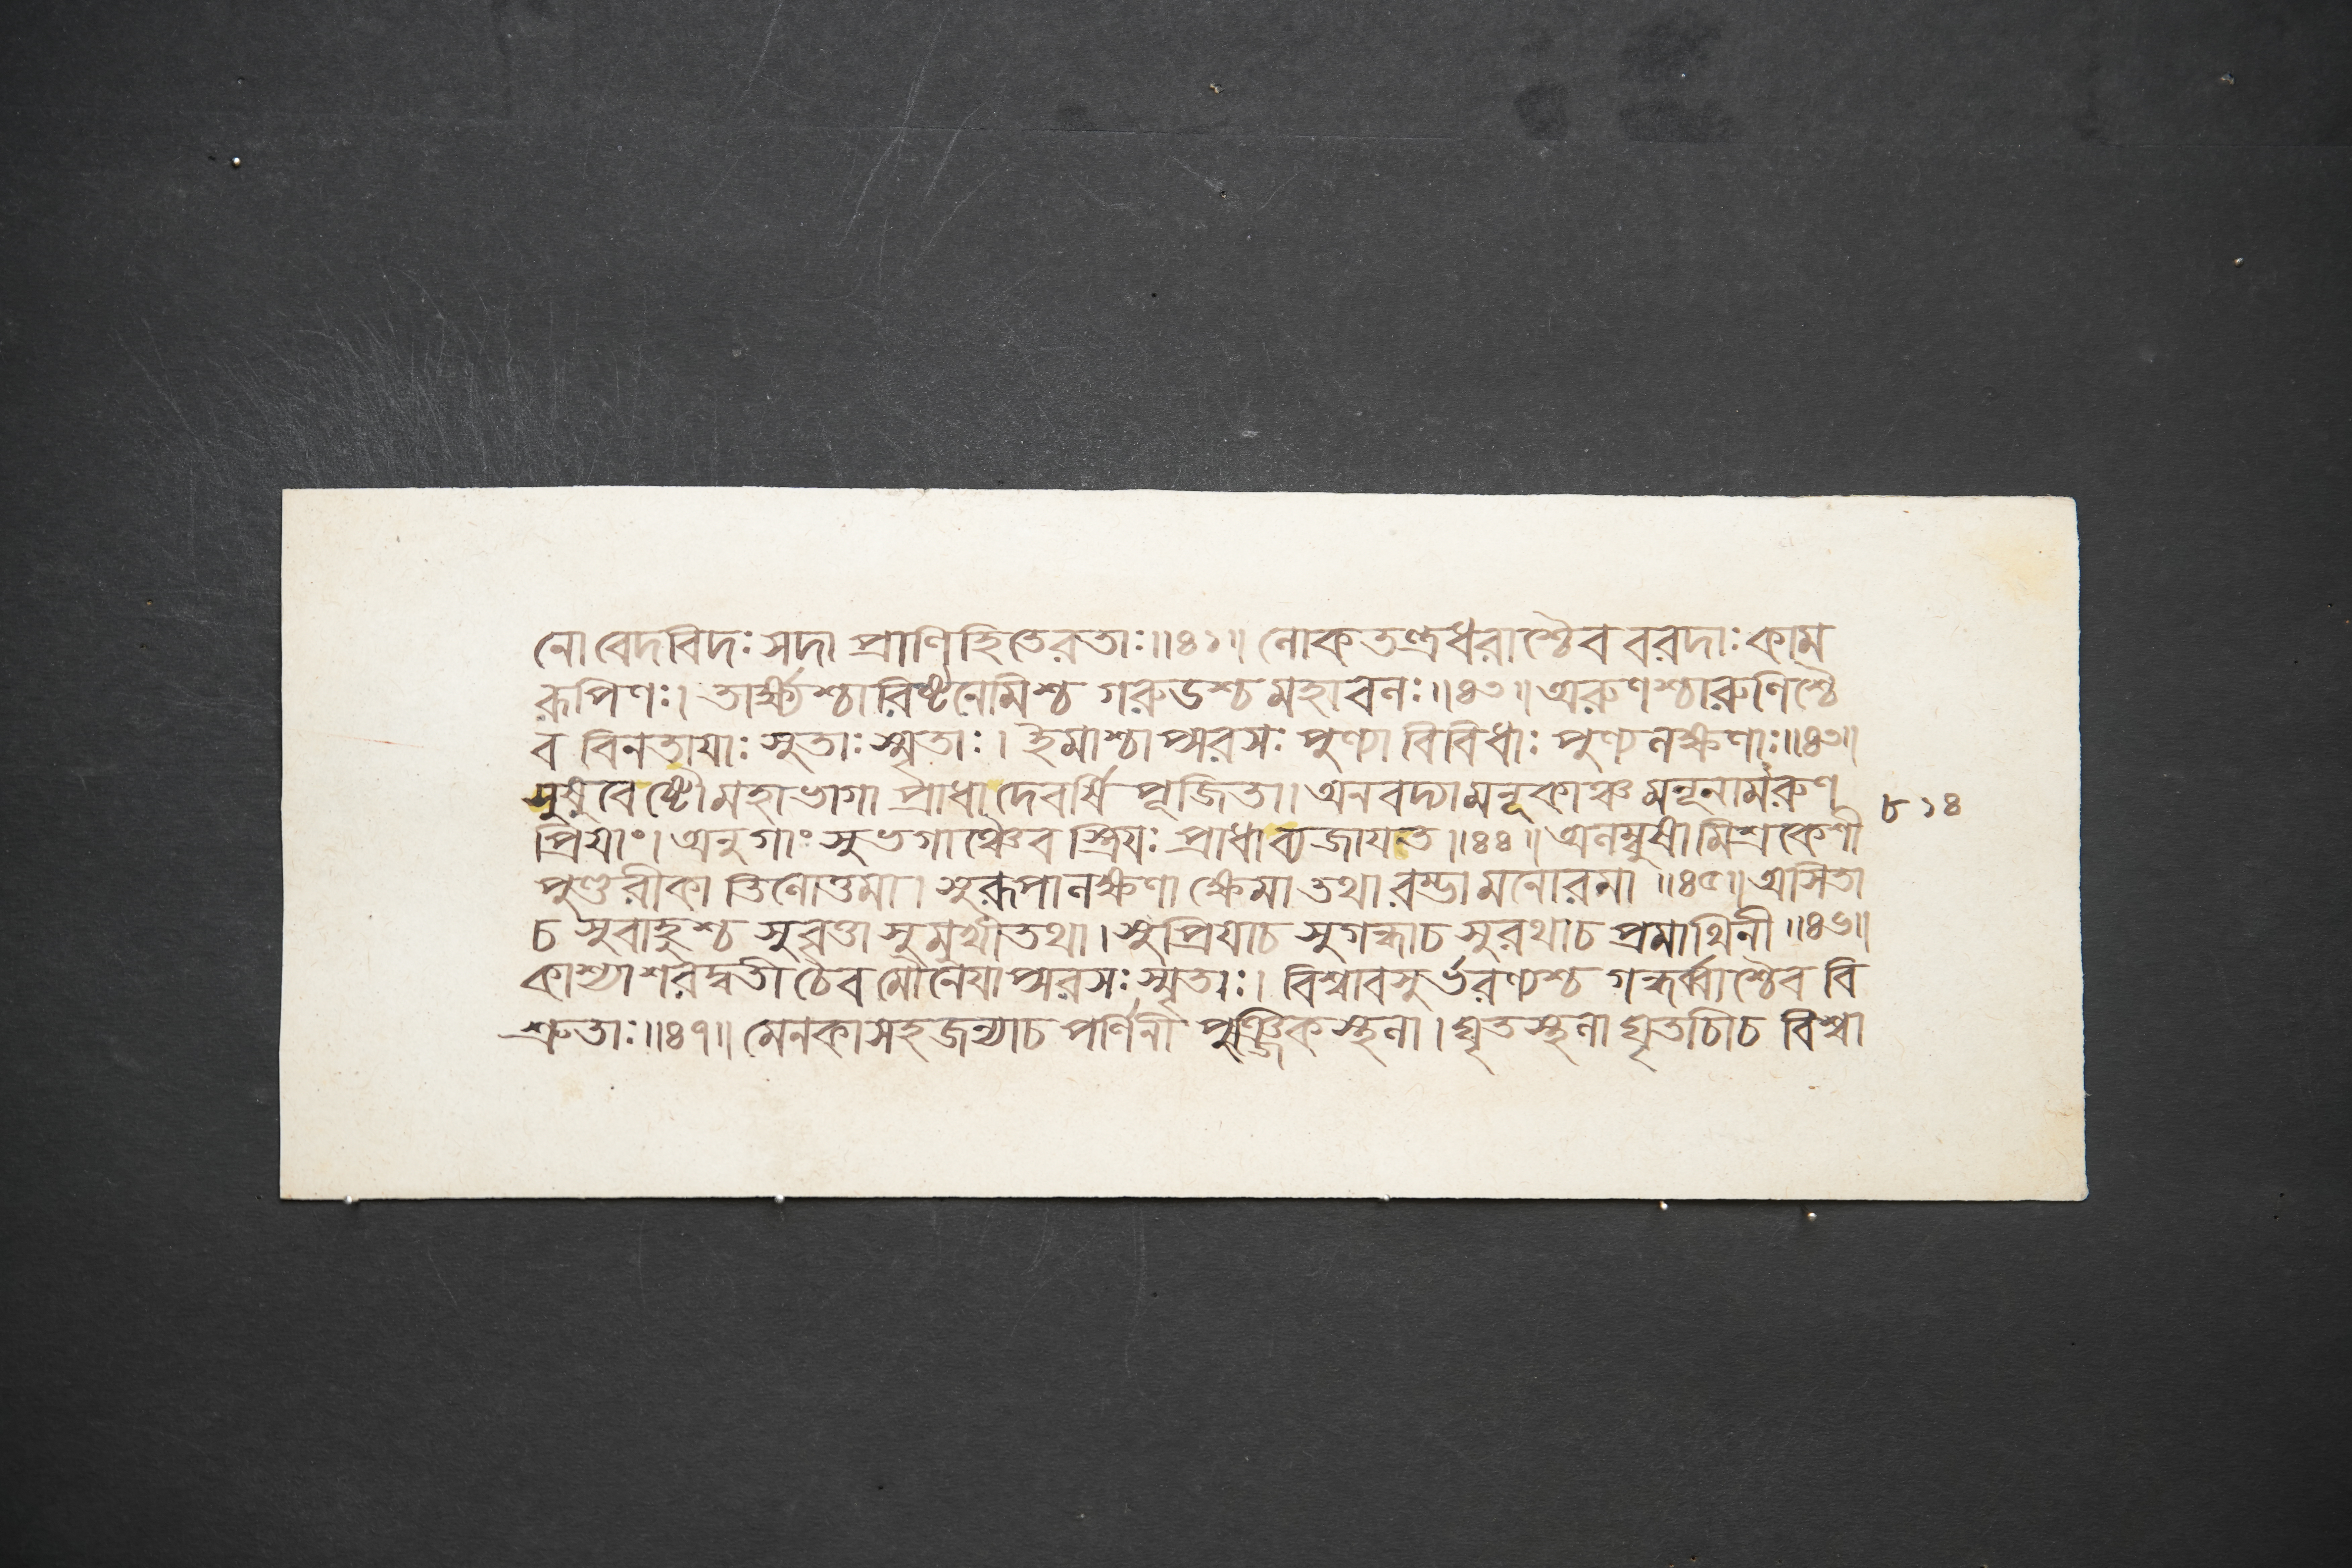 নো বেদবিদঃ সদা প্রাণিহিতেরতাঃ॥৪১॥ নোকতন্ত্রধরাশ্চৈব বরদাঃ কাম
রূপিণঃ। তার্ক্ষ্যশ্চারিষ্টনেমিশ্চ গরুডশ্চ মহাবনঃ॥৪২॥ অরুণশ্চারুণিশ্চৈ
ব বিনতাযাঃ সুতাঃ স্মৃতাঃ। ইমাশ্চাপ্সরসঃ পুণ্যা বিবিধাঃ পুণ্যনক্ষণাঃ॥৪৩॥
সুষুবেষ্টৌ মহাভাগা প্রাধা দেবর্ষি পূজিতা। অনবদ্যামনূকাঞ্চ মনূনামরুণ
প্রিযাং। অনুগাং সুভগাঞ্চৈব স্ত্রিযঃ প্রাধাব্যজাযত॥৪৪॥ অনম্বুষা মিশ্রকেশী
পুণ্ডরীকা তিনোত্তমা। সুরূপানক্ষণা ক্ষেমা তথা রম্ভা মনোরমা॥৪৫॥ অসিতা
চ সুবাহুশ্চ সুব্রতা সুমুখী তথা। সুপ্রিযাচ সুগন্ধাচ সুরথাচ প্রমাথিনী॥৪৬॥
কাশ্যা শরদ্বতী চৈব মৌনেযাপ্সরসঃ স্মৃতাঃ। বিশ্বাবসুর্ভরণ্যশ্চ গন্ধর্ব্বাশ্চৈব বি
শ্রুতাঃ॥৪৭॥ মেনকাসহজন্যাচ পর্ণিনী পুঞ্জিকস্থনা। ঘৃতস্থনা ঘৃতচীচ বিশ্বা
৮১৪